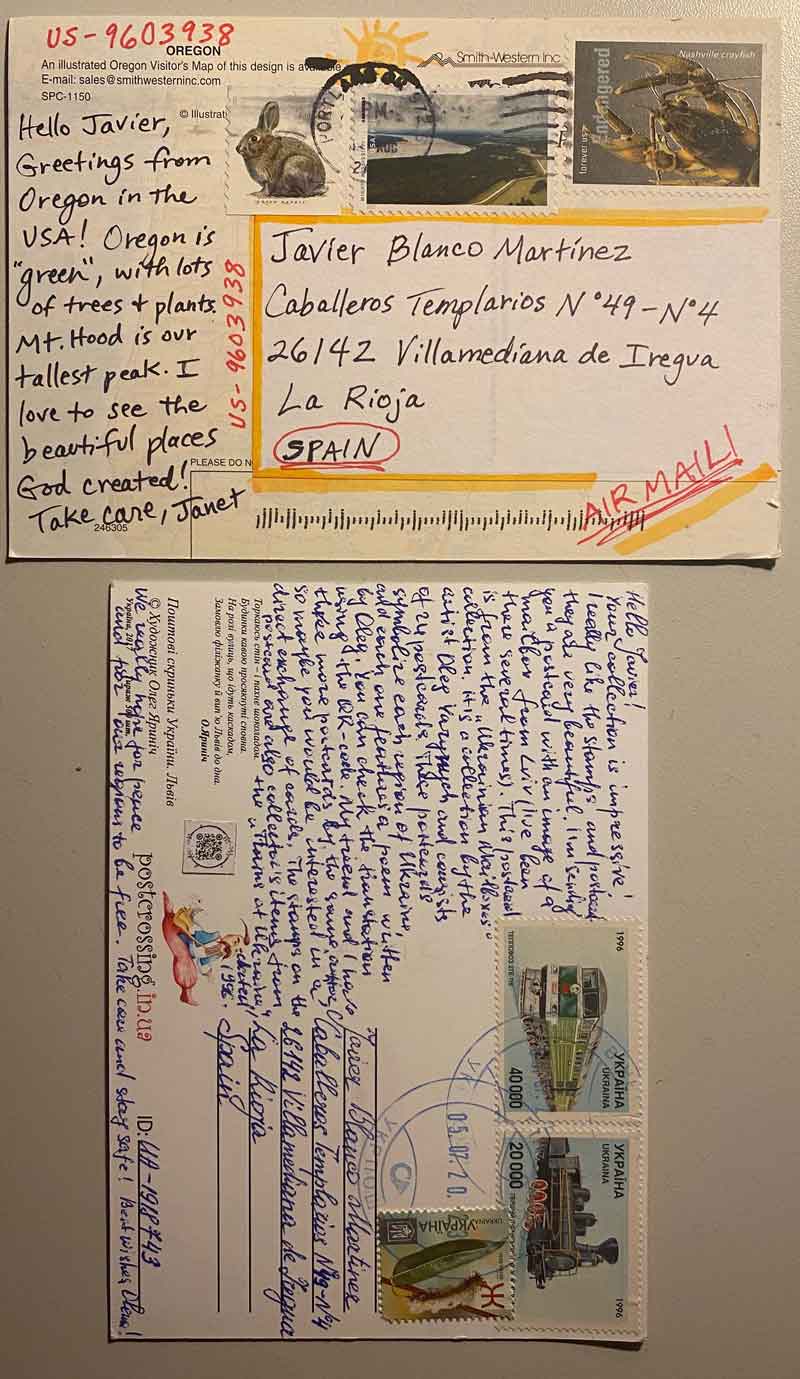 US-9603938
OREGON
An illustrated Oregon Visitor's Map of this design is available
E-mail: sales@smithwesterninc.com
SPC-1150
© Illustrat
Smith-Western Inc
Endangered
Nashville crayfish
forever usa
Hello Javier,
Greetings from
Oregon in the
USA! Oregon is
"green", with lots
of trees + plants.
Mt. Hood is our
tallest peak. I
love to see the
beautiful places
God created!
Take care, Janet
246305
US-9603938
PLEASE DO N
Javier Blanco Martínez
Caballeros Templarios Nº49-Nº4
26142 Villamediana de Iregua
La Rioja
SPAIN
AIR MAIL!
Hello Javier!
Your collection is impressive!
I really like the stamps and postcards
they are very beautiful. I'm sending
you a postcard with an image of a
mailbox from Lviv (I've been
there several times). This postcard
is from the "Ukrainian Mailboxes"
collection, it is a collection by the
artist Oleg Yarynych and consists
of 24 postcards. These postcards
symbolize each region of Ukraine,
and each one features a poem written
by Oleg. You can check the translation
using the QR-code. My friend and I have
three more postcards by the same author,
so maybe you would be interested in a
direct exchange of cards. The stamps on the
postcard are also collector's items from
the "Trains of Ukraine"
1996.
We really hope for peace
and for our regions to be free. Take care and stay safe! Best wishes Olena!
Торкаюсь стін – і пахне шоколадом.
Будинки кавою просякнуті сповна.
На розі вулиць, що ідуть каскадом,
Замовлю філіжанку й вип'ю Львів до дна.
О.Яринич
Поштові скриньки України. Львів
© Художник Олег Яринич
Україна, 2017
postcrossing.in.ua
ID: UA-1918743
Javier Blanco Martinez
Caballeros Templarios Nº49-Nº4
26142 Villamediana de Iregua
La Rioja
Spain
1996
ТЕПЛОВОЗ
40000
УКРАЇНА
UKRAINA
20000
УКРАЇНА
UKRAINA
1996
УКРАЇНА
UKRAINE
Ж
05.07.2